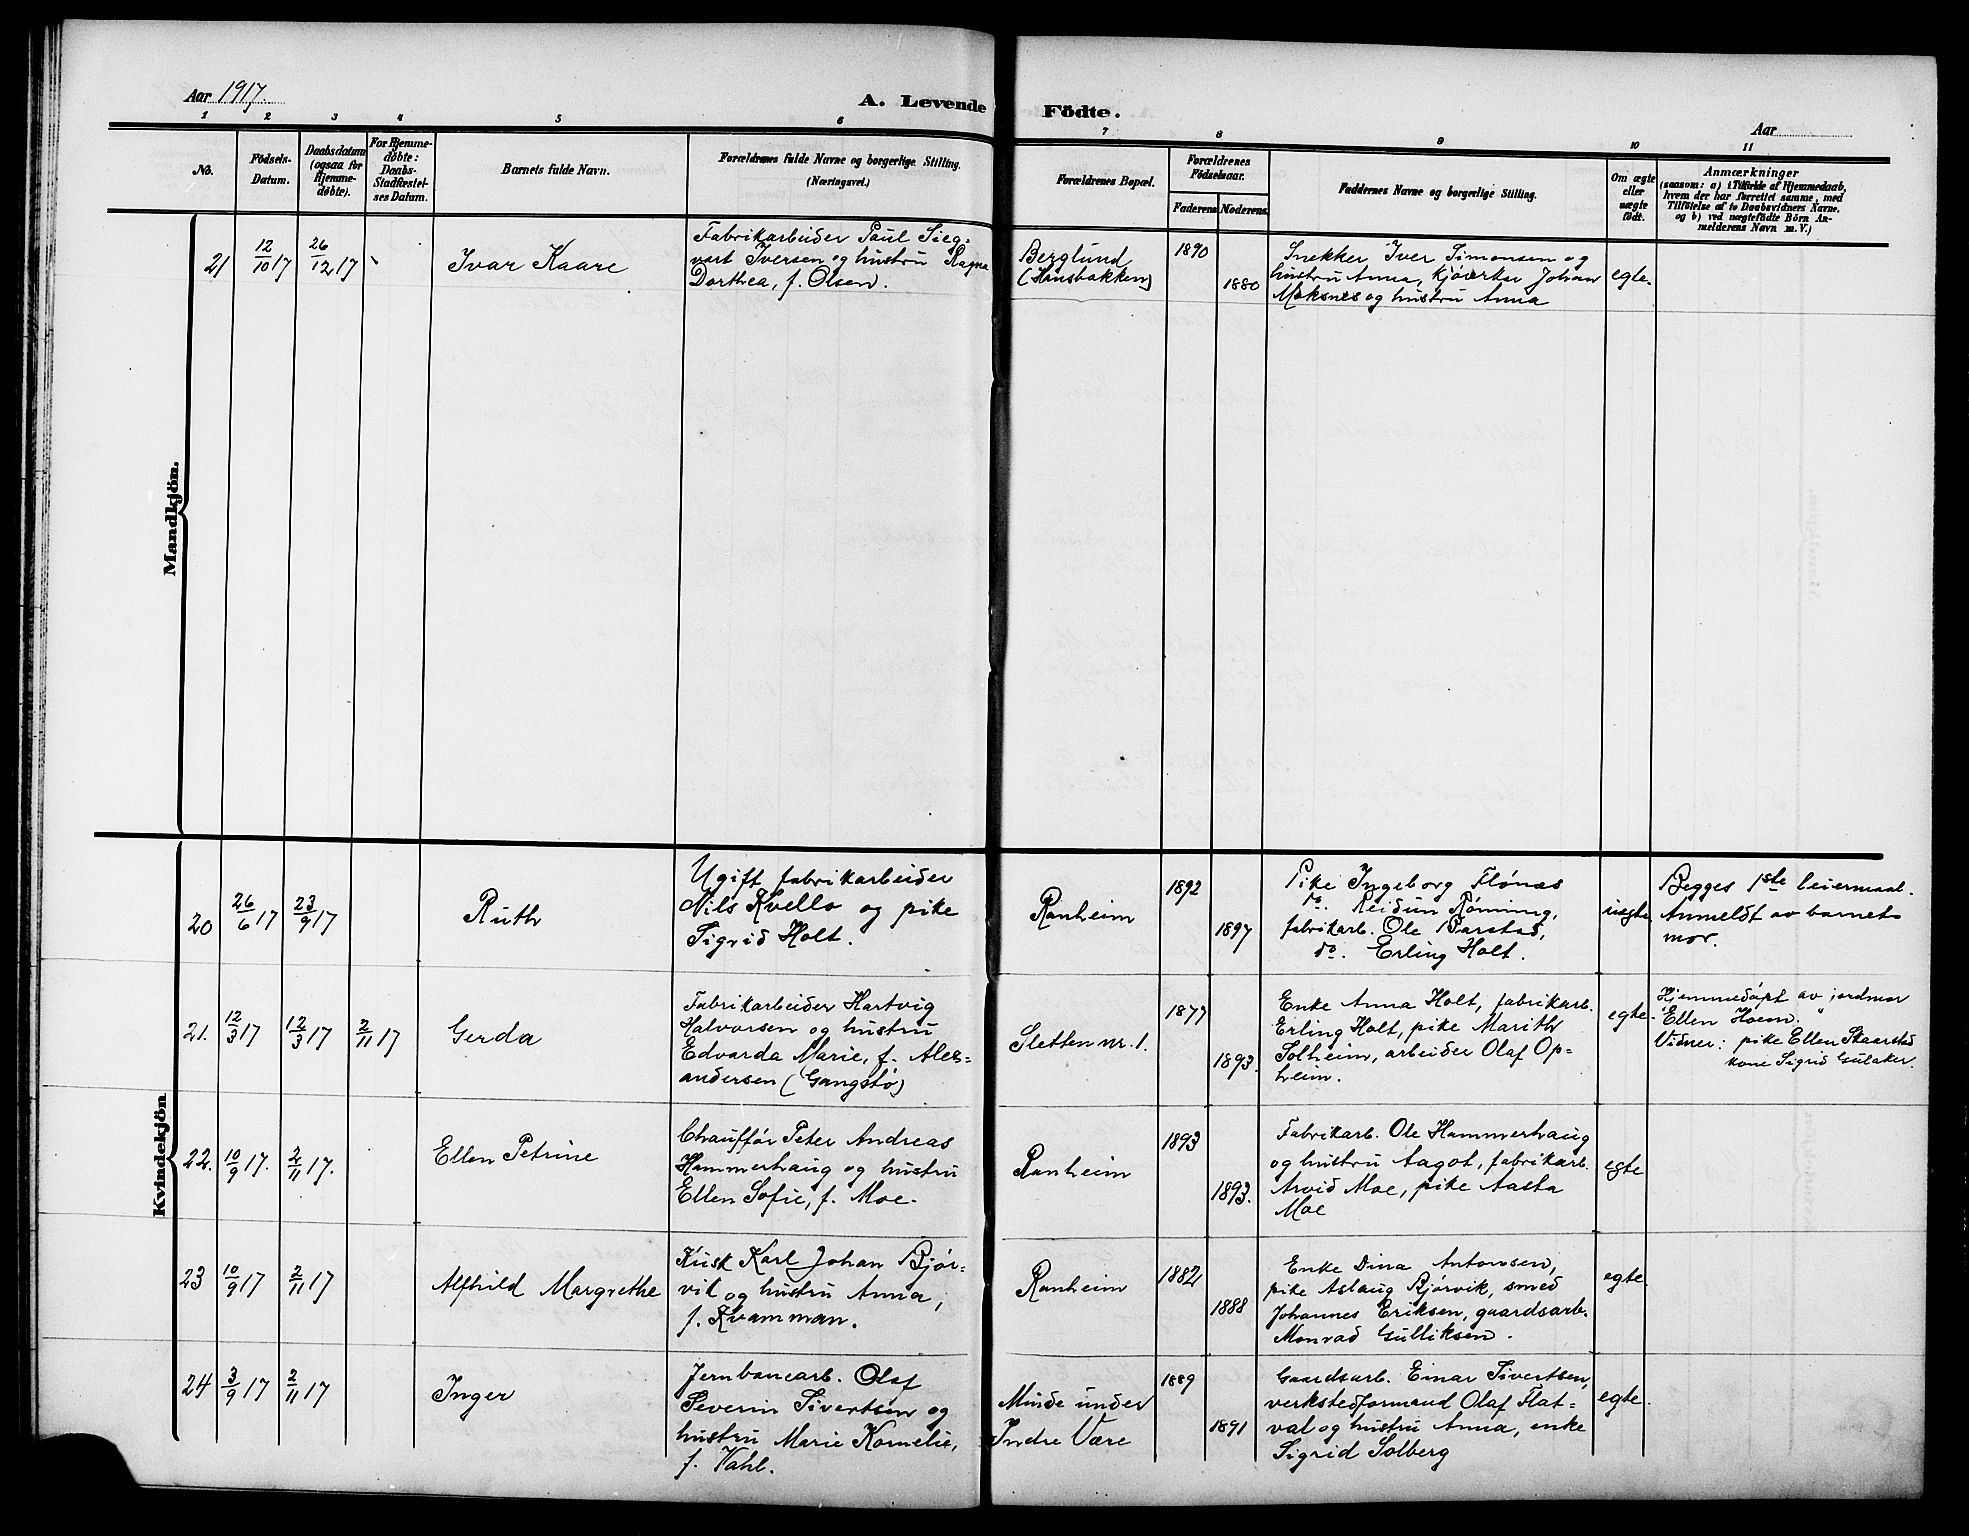 Aar 1917.
A. Levende Födte.
Aar
1 2 3 4 5 6 7 8 9 10 11
No.
Födsels-
Datum.
Daabsdatum
(ogsaa for
Hjemme-
döbte).
For Hjemme-
döbte:
Daabs-
Stadfæstel-
ses Datum.
Barnets fulde Navn.
Forældrenes fulde Navne og borgerlige Stilling.
(Næringsvei.)
Forældrenes Bopæl.
Forældrenes
Födselsaar.
Faderens Moderens
Faddernes Navne og borgerlige Stilling.
Om ægte
eller
uægte
födt.
Anmærkninger
(saasom: a) i Tilfælde af Hjemmedaab,
hvem der har forrettet samme, med
Tilföielse af to Daabsvidners Navne.
og b) ved uægtefödte Börn An-
melderens Navn m. V.)
Mandkjön.
21
12/10 17
26/12 17
Ivar Kaare
Fabrikarbeider Paul Sieg-
vart Iversen og hustru Ragna
Dorthea, f. Olsen.
Berglund
(Hansbakken)
1890
1880
Snekker Iver Simonsen og
hustru Anna, Johan
Moksnes og hustru Anna
egte.
Kvindekjön
20
26/6 17
23/9 17
Ruth
Ugift fabrikarbeider
Nils Kvello og pike
Sigrid Holt.
Ranheim
1892
1897
Pike Ingeborg Flønæs
do. Reidun Rønning,
fabrikarb. Ole Barstad,
do. Erling Holt.
uegte
Begges 1ste leiermaal.
Anmeldt av barnets
mor.
21.
12/3 17
12/3 17
2/11 17
Gerda
Fabrikarbeider Hartvig
Halvorsen og hustru
Edvarda Marie, f. Alex-
andersen (Gangstø)
Sletten nr. 1.
1877
1893.
Enke Anna Holt, fabrikarb.
Erling Holt, pike Marith
Solheim, arbeider Olaf Op-
heim.
egte.
Hjemmedøpt av jordmor
Ellen Hoem.
Vidner: pike Ellen Skaarstad
kone Sigrid Gulaker.
22.
10/9 17.
2/11 17.
Ellen Petrine
Chauffør Peter Andreas
Hammerhaug og hustru
Ellen Sofie, f. Moe.
Ranheim
1893
1893.
Fabrikarb. Ole Hammerhaug
og hustru Aagot, fabrikarb.
Arvid Moe, pike Aasta
Moe
egte
23
10/9 17
2/11 17
Alfhild Margrethe
Kusk Karl Johan Bjør-
vik og hustru Anna,
f. Kvamman.
Ranheim
1882
1888
Enke Dina Antonsen,
pike Aslaug Bjørvik, smed
Johannes Eriksen, gaardsarb.
Monrad Gulliksen.
egte
24
3/9 17
2/11 17
Inger
Jernbanearb. Olaf
Severin Sivertsen og
hustru Marie Kornelie,
f. Vahl.
Minde under
Indre Være
1889
1891
Gaardsarb. Einar Sivertsen,
verkstedformand Olaf Flat-
val og hustru Anna, enke
Sigrid Solberg
egte.